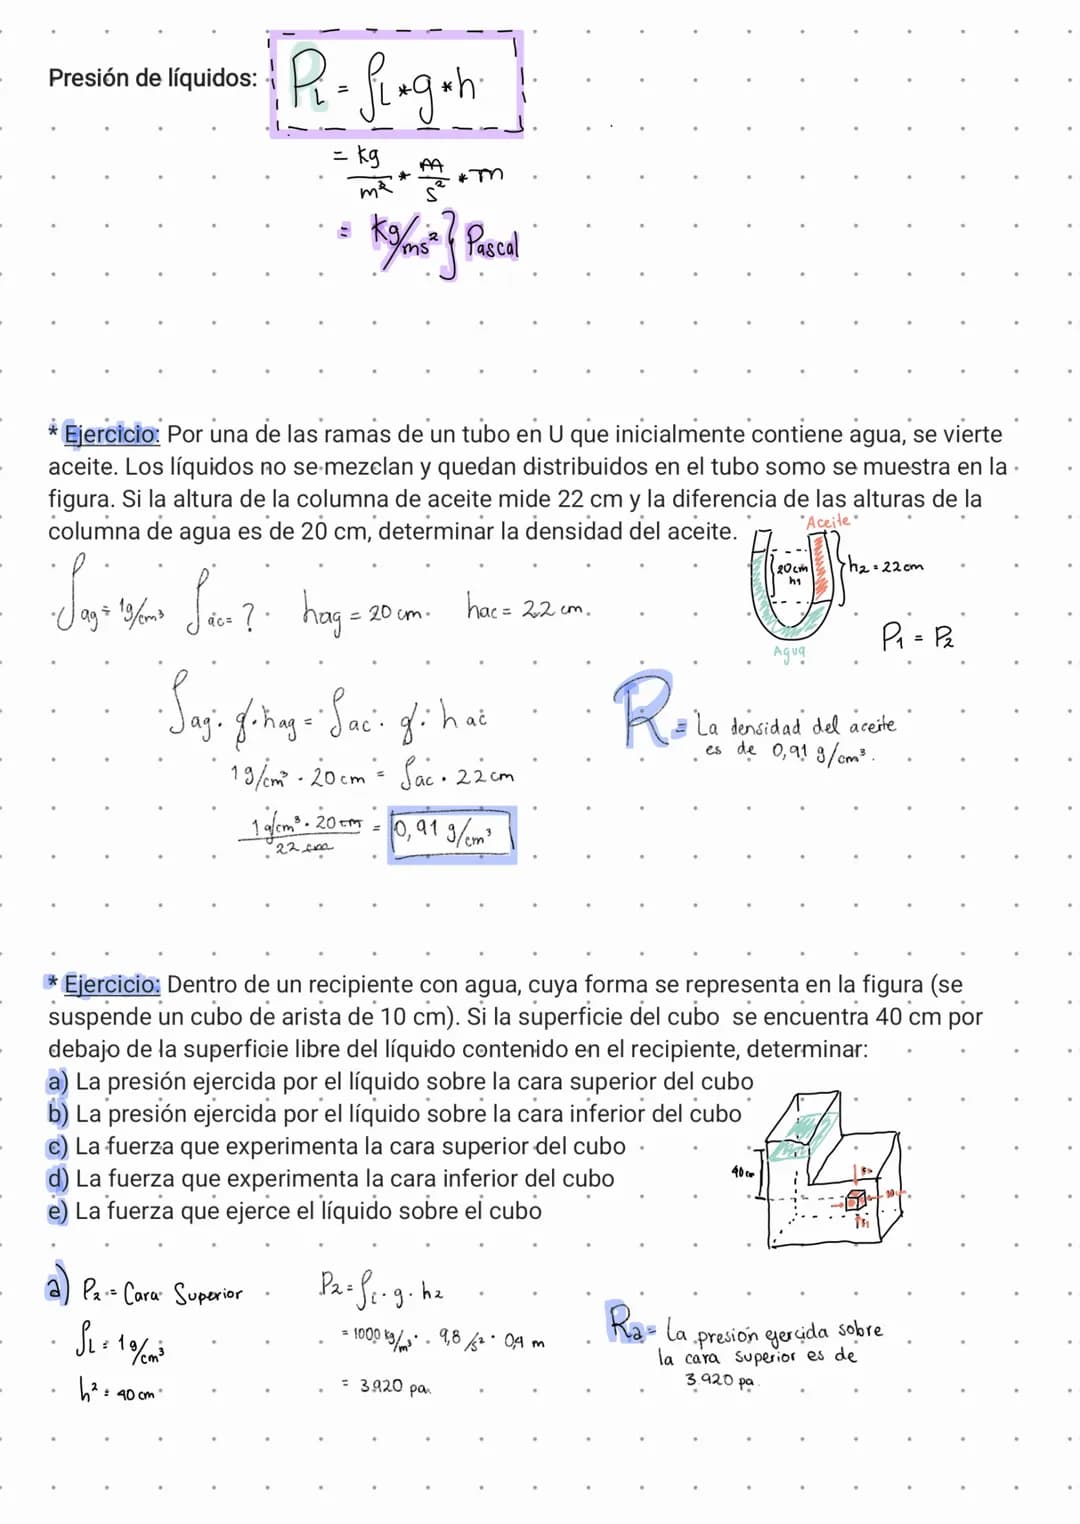 Presión de líquidos: P_L = ρ_L * g * h
= kg/m³ * m/s² * m
= kg/ms² } Pascal
* Ejercicio: Por una de las ramas de un tubo en U que inicialmente contiene agua, se vierte
aceite. Los líquidos no se mezclan y quedan distribuidos en el tubo somo se muestra en la
figura. Si la altura de la columna de aceite mide 22 cm y la diferencia de las alturas de la
columna de agua es de 20 cm, determinar la densidad del aceite.
Aceite
20cm h1
h2 = 22cm
Agua
P1 = P2
ρag = 1g/cm³ ρac = ? hag = 20 cm. hac = 22 cm.
ρag · g · hag = ρac · g · hac
1g/cm³ · 20cm = ρac · 22cm
1g/cm³ · 20cm / 22cm = 0,91 g/cm³
R = La densidad del aceite
es de 0,91 g/cm³.
* Ejercicio: Dentro de un recipiente con agua, cuya forma se representa en la figura (se
suspende un cubo de arista de 10 cm). Si la superficie del cubo se encuentra 40 cm por
debajo de la superficie libre del líquido contenido en el recipiente, determinar:
a) La presión ejercida por el líquido sobre la cara superior del cubo
b) La presión ejercida por el líquido sobre la cara inferior del cubo
c) La fuerza que experimenta la cara superior del cubo
d) La fuerza que experimenta la cara inferior del cubo
e) La fuerza que ejerce el líquido sobre el cubo
40cm
a) P2 = Cara Superior
ρL = 1g/cm³
h² = 40cm
P2 = ρL · g · h2
= 1000 kg/m³ · 9,8 /s² · 0,4 m
= 3.920 pa.
Ra = La presión ejercida sobre
la cara superior es de
3.920 pa.